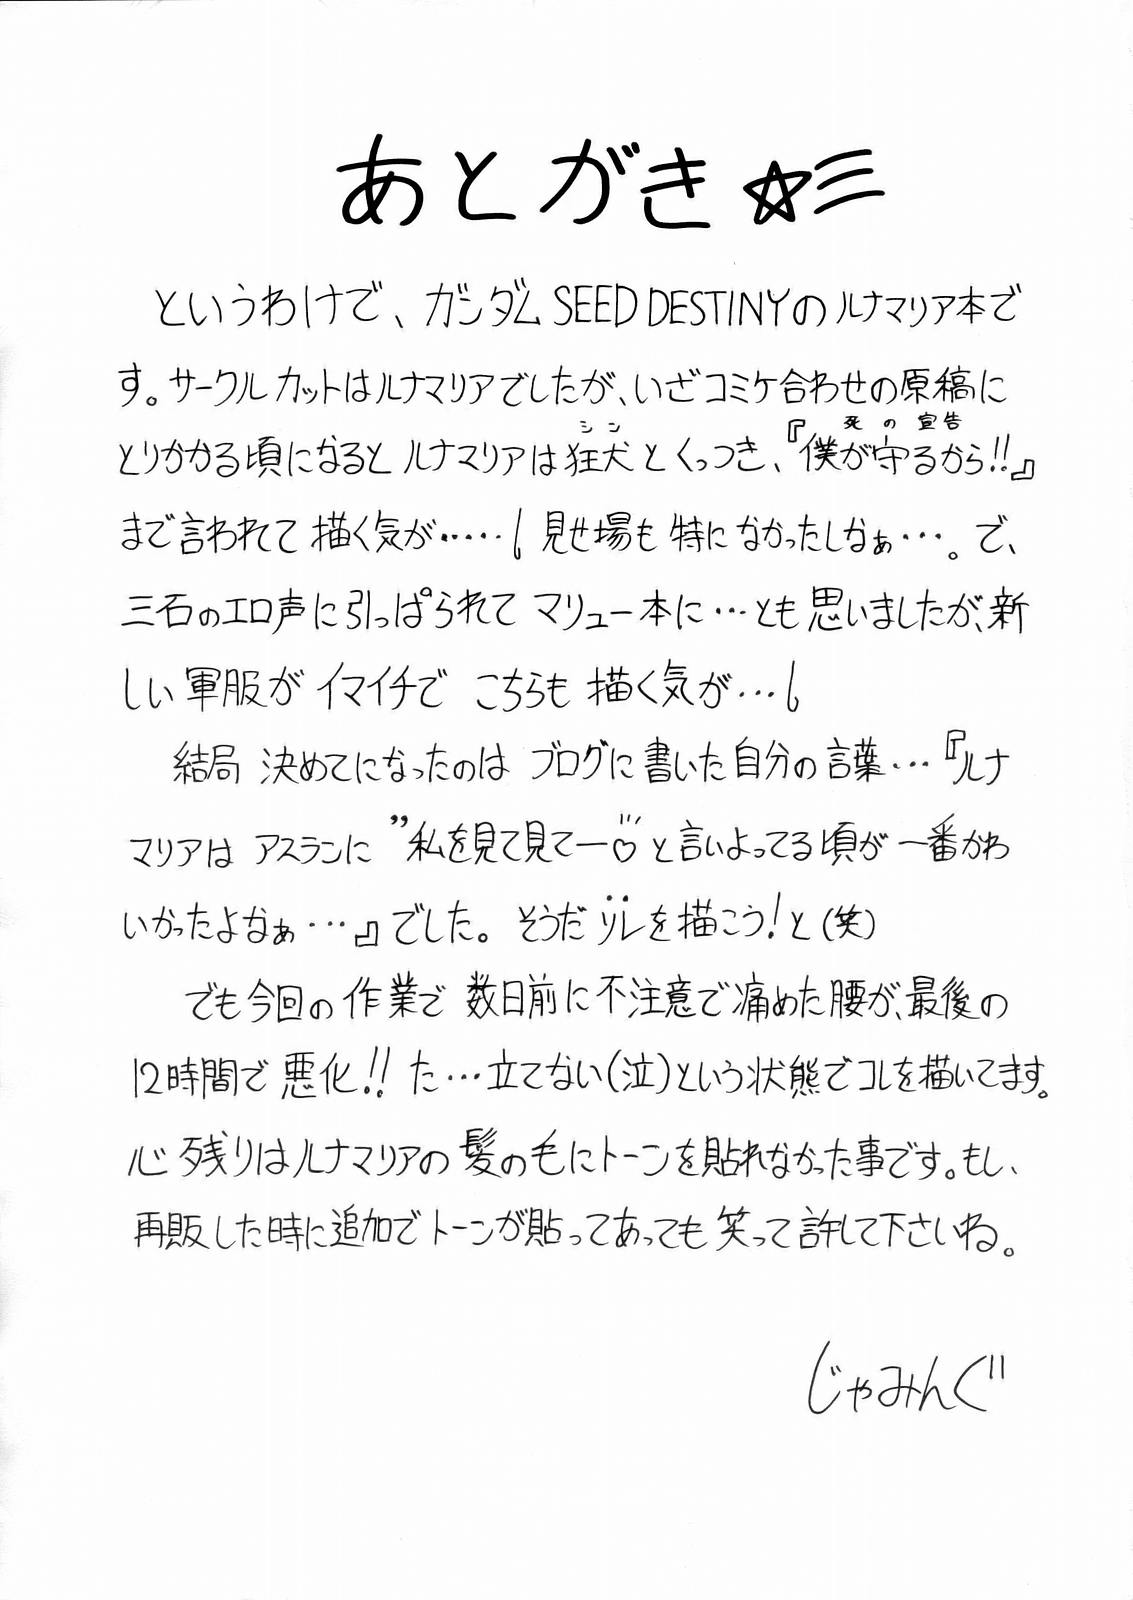 あとがき☆彡
というわけで、ガンダムSEED DESTINYのルナマリア本で
す。サークルカットはルナマリアでしたが、いざコミケ合わせの原稿に
シン 死の宣告
とりかかる頃になるとルナマリアは狂犬とくっつき、『僕が守るから!!』
まで言われて描く気が‥‥‥ 見せ場も特になかったしなぁ…。で、
三石のエロ声に引っぱられてマリュー本に…とも思いましたが、新
しい軍服がイマイチでこちらも描く気が…
結局決めてになったのはブログに書いた自分の言葉…『ルナ
マリアはアスランに”私を見て見てー♡と言いよってる頃が一番かわ
いかったよなぁ…』でした。そうだソレを描こう!と(笑)
でも今回の作業で数日前に不注意で痛めた腰が、最後の
12時間で悪化!!た…立てない(泣)という状態でコレを描いてます。
心残りはルナマリアの髪の毛にトーンを貼れなかった事です。もし、
再販した時に追加でトーンが貼ってあっても笑って許して下さいね。
じゃみんぐ